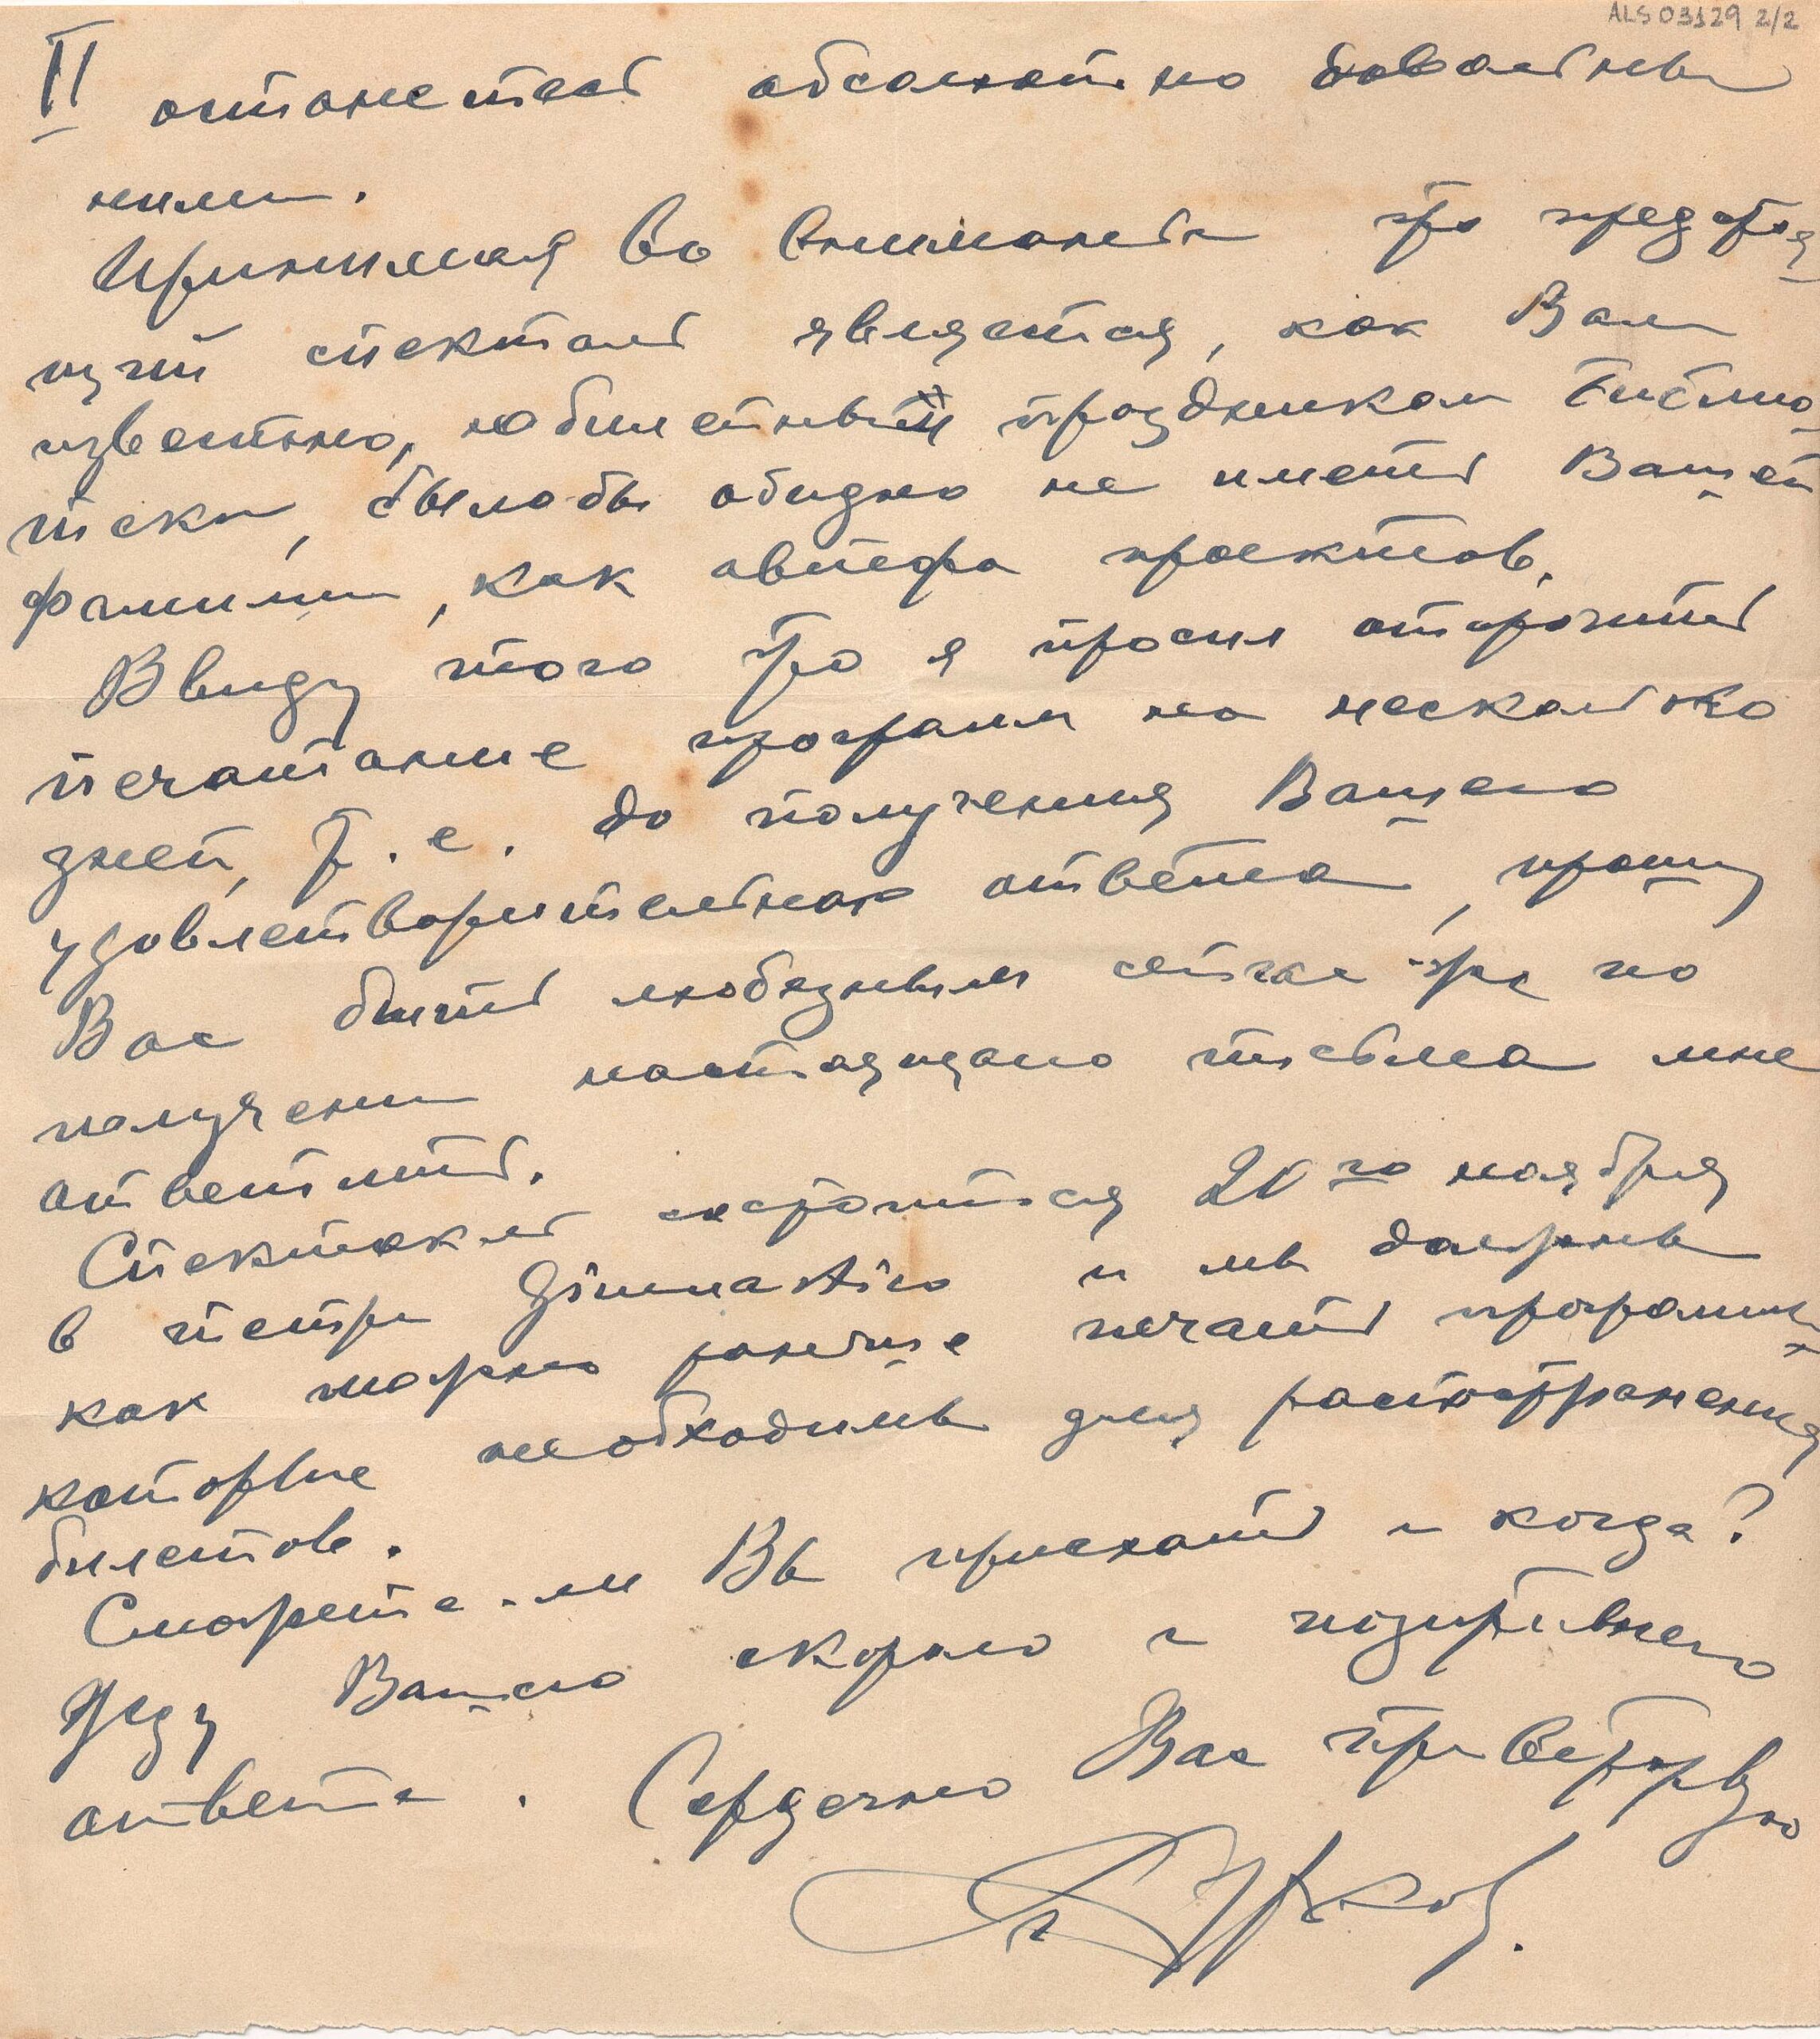 ALS 03129 2/2
II останетесь абсолютно довольны
ними.
Принимая во внимание что предстоя-
щий спектакль является, как Вам
известно, юбилейным праздником Библио-
теки, было бы обидно не иметь Вашей
фамилии, как автора проектов.
Ввиду того что я просил отсрочить
печатание программ на несколько
дней, т.е. до получения Вашего
удовлетворительного ответа, прошу
Вас быть любезным сейчас же по
получении настоящаго письма мне
ответить.
Спектакль состоится 20го ноября
в театре Gimnastico и мы должны
как можно раньше печатать программы
которые необходимы для распространения
билетов.
Сможете-ли Вы приехать и когда?
Жду Вашего скораго и позитивнаго
ответа. Сердечно Вас приветствую